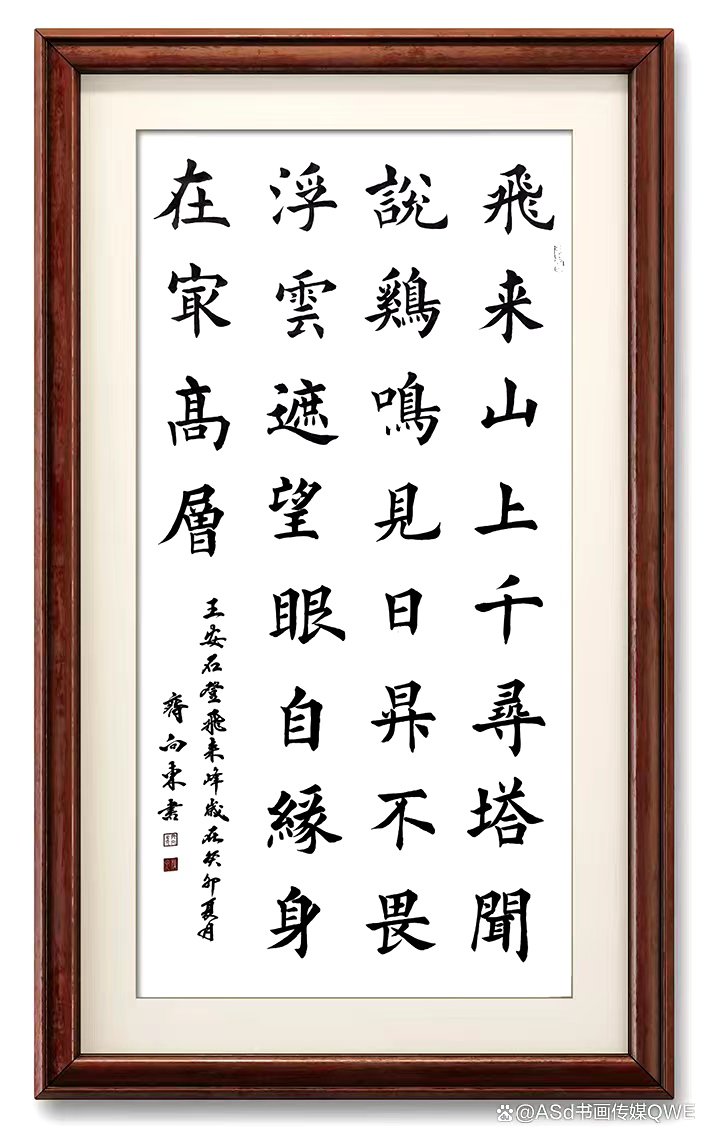 飛来山上千尋塔聞
說鷄鳴見日昇不畏
浮雲遮望眼自緣身
在冣高層
王安石登飛来峰歲在癸卯夏月
齊向東书
@ASd书画传媒QWE